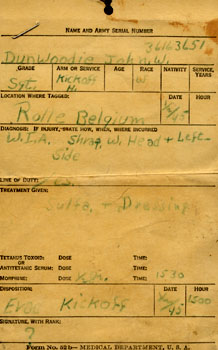 NAME AND ARMY SERIAL NUMBER
36163651
Dunwoodie John. W.
GRADE ARM OR SERVICE AGE RACE NATIVITY SERVICE, YEARS
Sgt. Kickoff W
LOCATION WHERE TAGGED: DATE HOUR
Rolle Belgium
DIAGNOSIS: IF INJURY, STATE HOW, WHEN, WHERE INCURRED
W.I.A. Shrap. W. Head + Left
Side
LINE OF DUTY:
TREATMENT GIVEN:
Sulfa. + Dressing
TETANUS TOXOID: DOSE TIME:
OR
ANTITETANIC SERUM: DOSE TIME:
MORPHINE: DOSE TIME: 1530
DISPOSITION: DATE HOUR
Evac Kickoff 45 1500
SIGNATURE, WITH RANK:
?
Form No. 52b—MEDICAL DEPARTMENT, U. S. A.